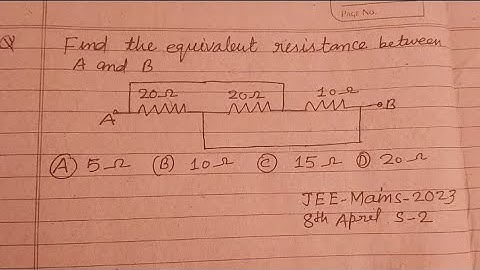 PAGE NO.
Q Find the equivalent resistance between
A and B
20Ω 20Ω 10Ω
A B
(A) 5Ω (B) 10Ω (C) 15Ω (D) 20Ω
JEE-Mains-2023
8th April S-2